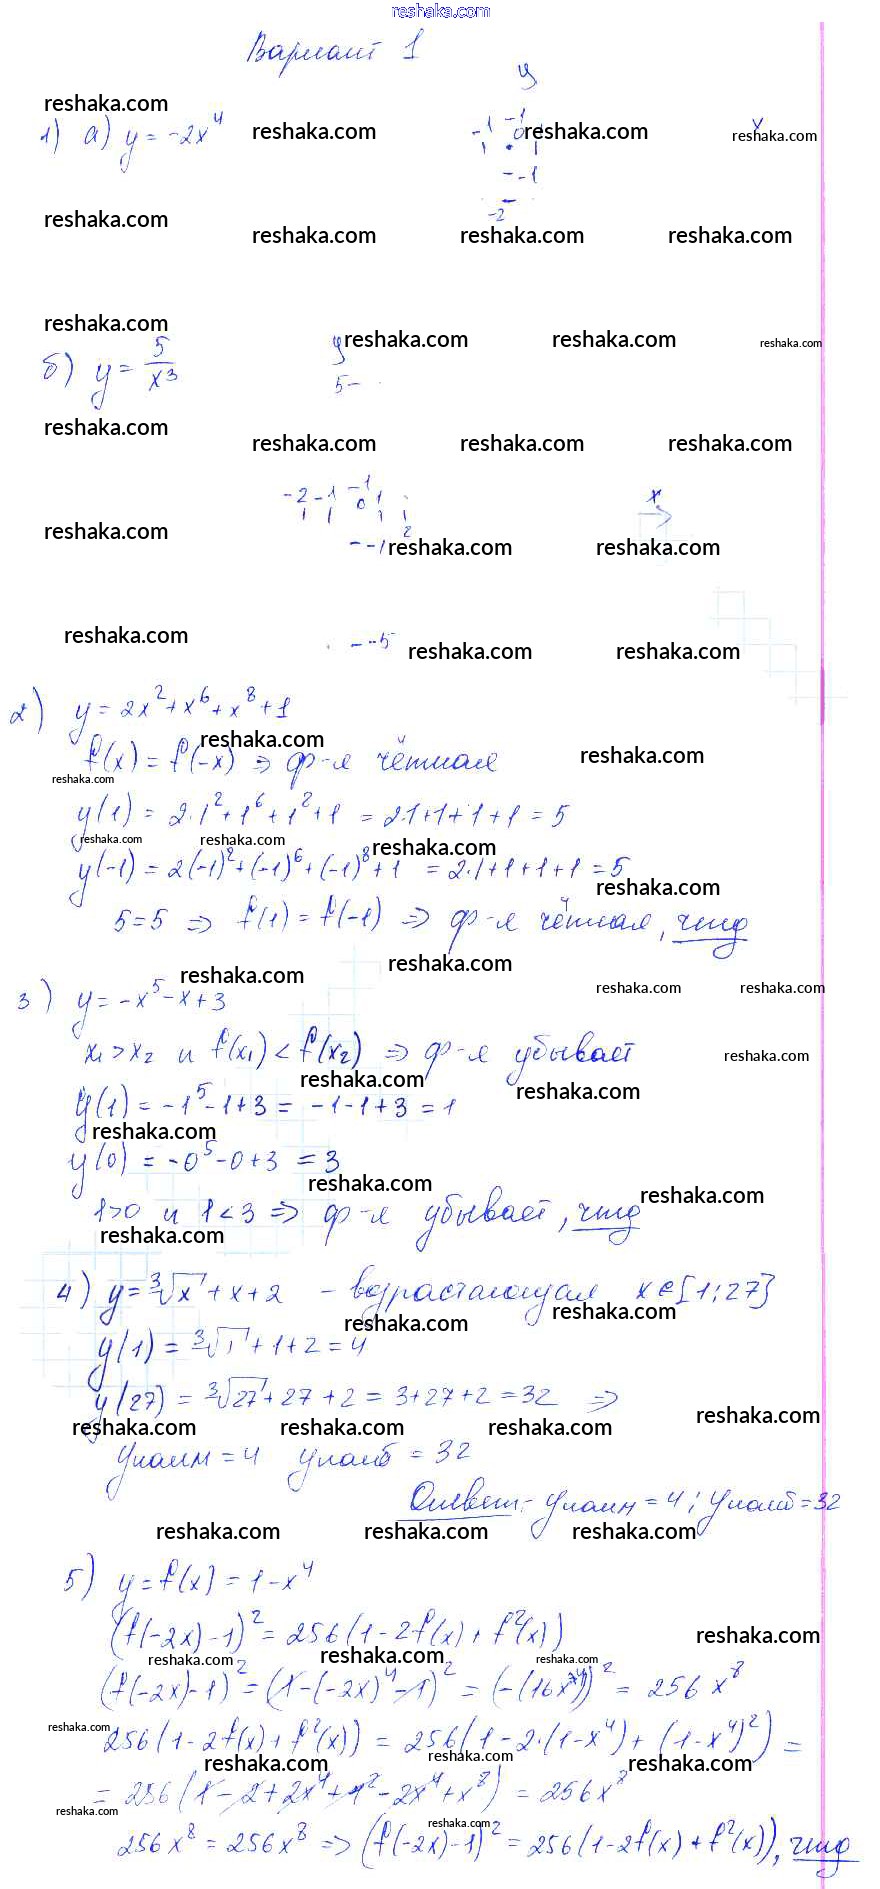 reshaka.com
Вариант 1
reshaka.com
1) а) y = -2x⁴
y
-1 -1 0 1
x
reshaka.com reshaka.com reshaka.com
- -1
-2
reshaka.com reshaka.com reshaka.com reshaka.com
reshaka.com reshaka.com reshaka.com reshaka.com
б) y = 5/x³
y
5 -
reshaka.com reshaka.com reshaka.com reshaka.com
-2 -1 -1 0 1 2
x
reshaka.com reshaka.com reshaka.com
- -1
reshaka.com reshaka.com reshaka.com
- -5
2) y = 2x² + x⁶ + x⁸ + 1
reshaka.com reshaka.com
f(x) = f(-x) ⇒ ф-я чётная
reshaka.com
y(1) = 2·1² + 1⁶ + 1² + 1 = 2·1+1+1+1 = 5
reshaka.com reshaka.com reshaka.com
y(-1) = 2(-1)² + (-1)⁶ + (-1)⁸ + 1 = 2·1+1+1+1 = 5
reshaka.com
5 = 5 ⇒ f(1) = f(-1) ⇒ ф-я чётная, чтд
reshaka.com reshaka.com reshaka.com reshaka.com
3) y = -x⁵ - x + 3
x₁ > x₂ и f(x₁) < f(x₂) ⇒ ф-я убывает
reshaka.com
reshaka.com reshaka.com
y(1) = -1⁵ - 1 + 3 = -1 - 1 + 3 = 1
reshaka.com
y(0) = -0⁵ - 0 + 3 = 3
reshaka.com reshaka.com
1 > 0 и 1 < 3 ⇒ ф-я убывает, чтд
reshaka.com
4) y = ³√x + x + 2 - возрастающая x ∈ [1; 27]
reshaka.com reshaka.com
y(1) = ³√1 + 1 + 2 = 4
y(27) = ³√27 + 27 + 2 = 3 + 27 + 2 = 32 ⇒
reshaka.com reshaka.com reshaka.com reshaka.com
yнаим = 4 yнаиб = 32
Ответ: yнаим = 4; yнаиб = 32
reshaka.com reshaka.com reshaka.com
5) y = f(x) = 1 - x⁴
(f(-2x) - 1)² = 256(1 - 2f(x) + f²(x))
reshaka.com
reshaka.com reshaka.com reshaka.com
(f(-2x) - 1)² = (1 - (-2x)⁴ - 1)² = (-(16x⁴))² = 256x⁸
reshaka.com
256(1 - 2f(x) + f²(x)) = 256(1 - 2·(1 - x⁴) + (1 - x⁴)²) =
reshaka.com reshaka.com reshaka.com
= 256(1 - 2 + 2x⁴ + 1² - 2x⁴ + x⁸) = 256x⁸
reshaka.com reshaka.com
256x⁸ = 256x⁸ ⇒ (f(-2x) - 1)² = 256(1 - 2f(x) + f²(x)), чтд